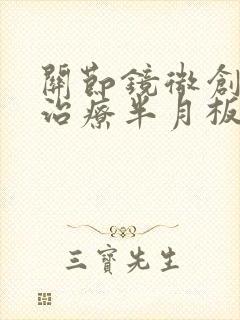 關節鏡微創
治療半月板
三寶先生